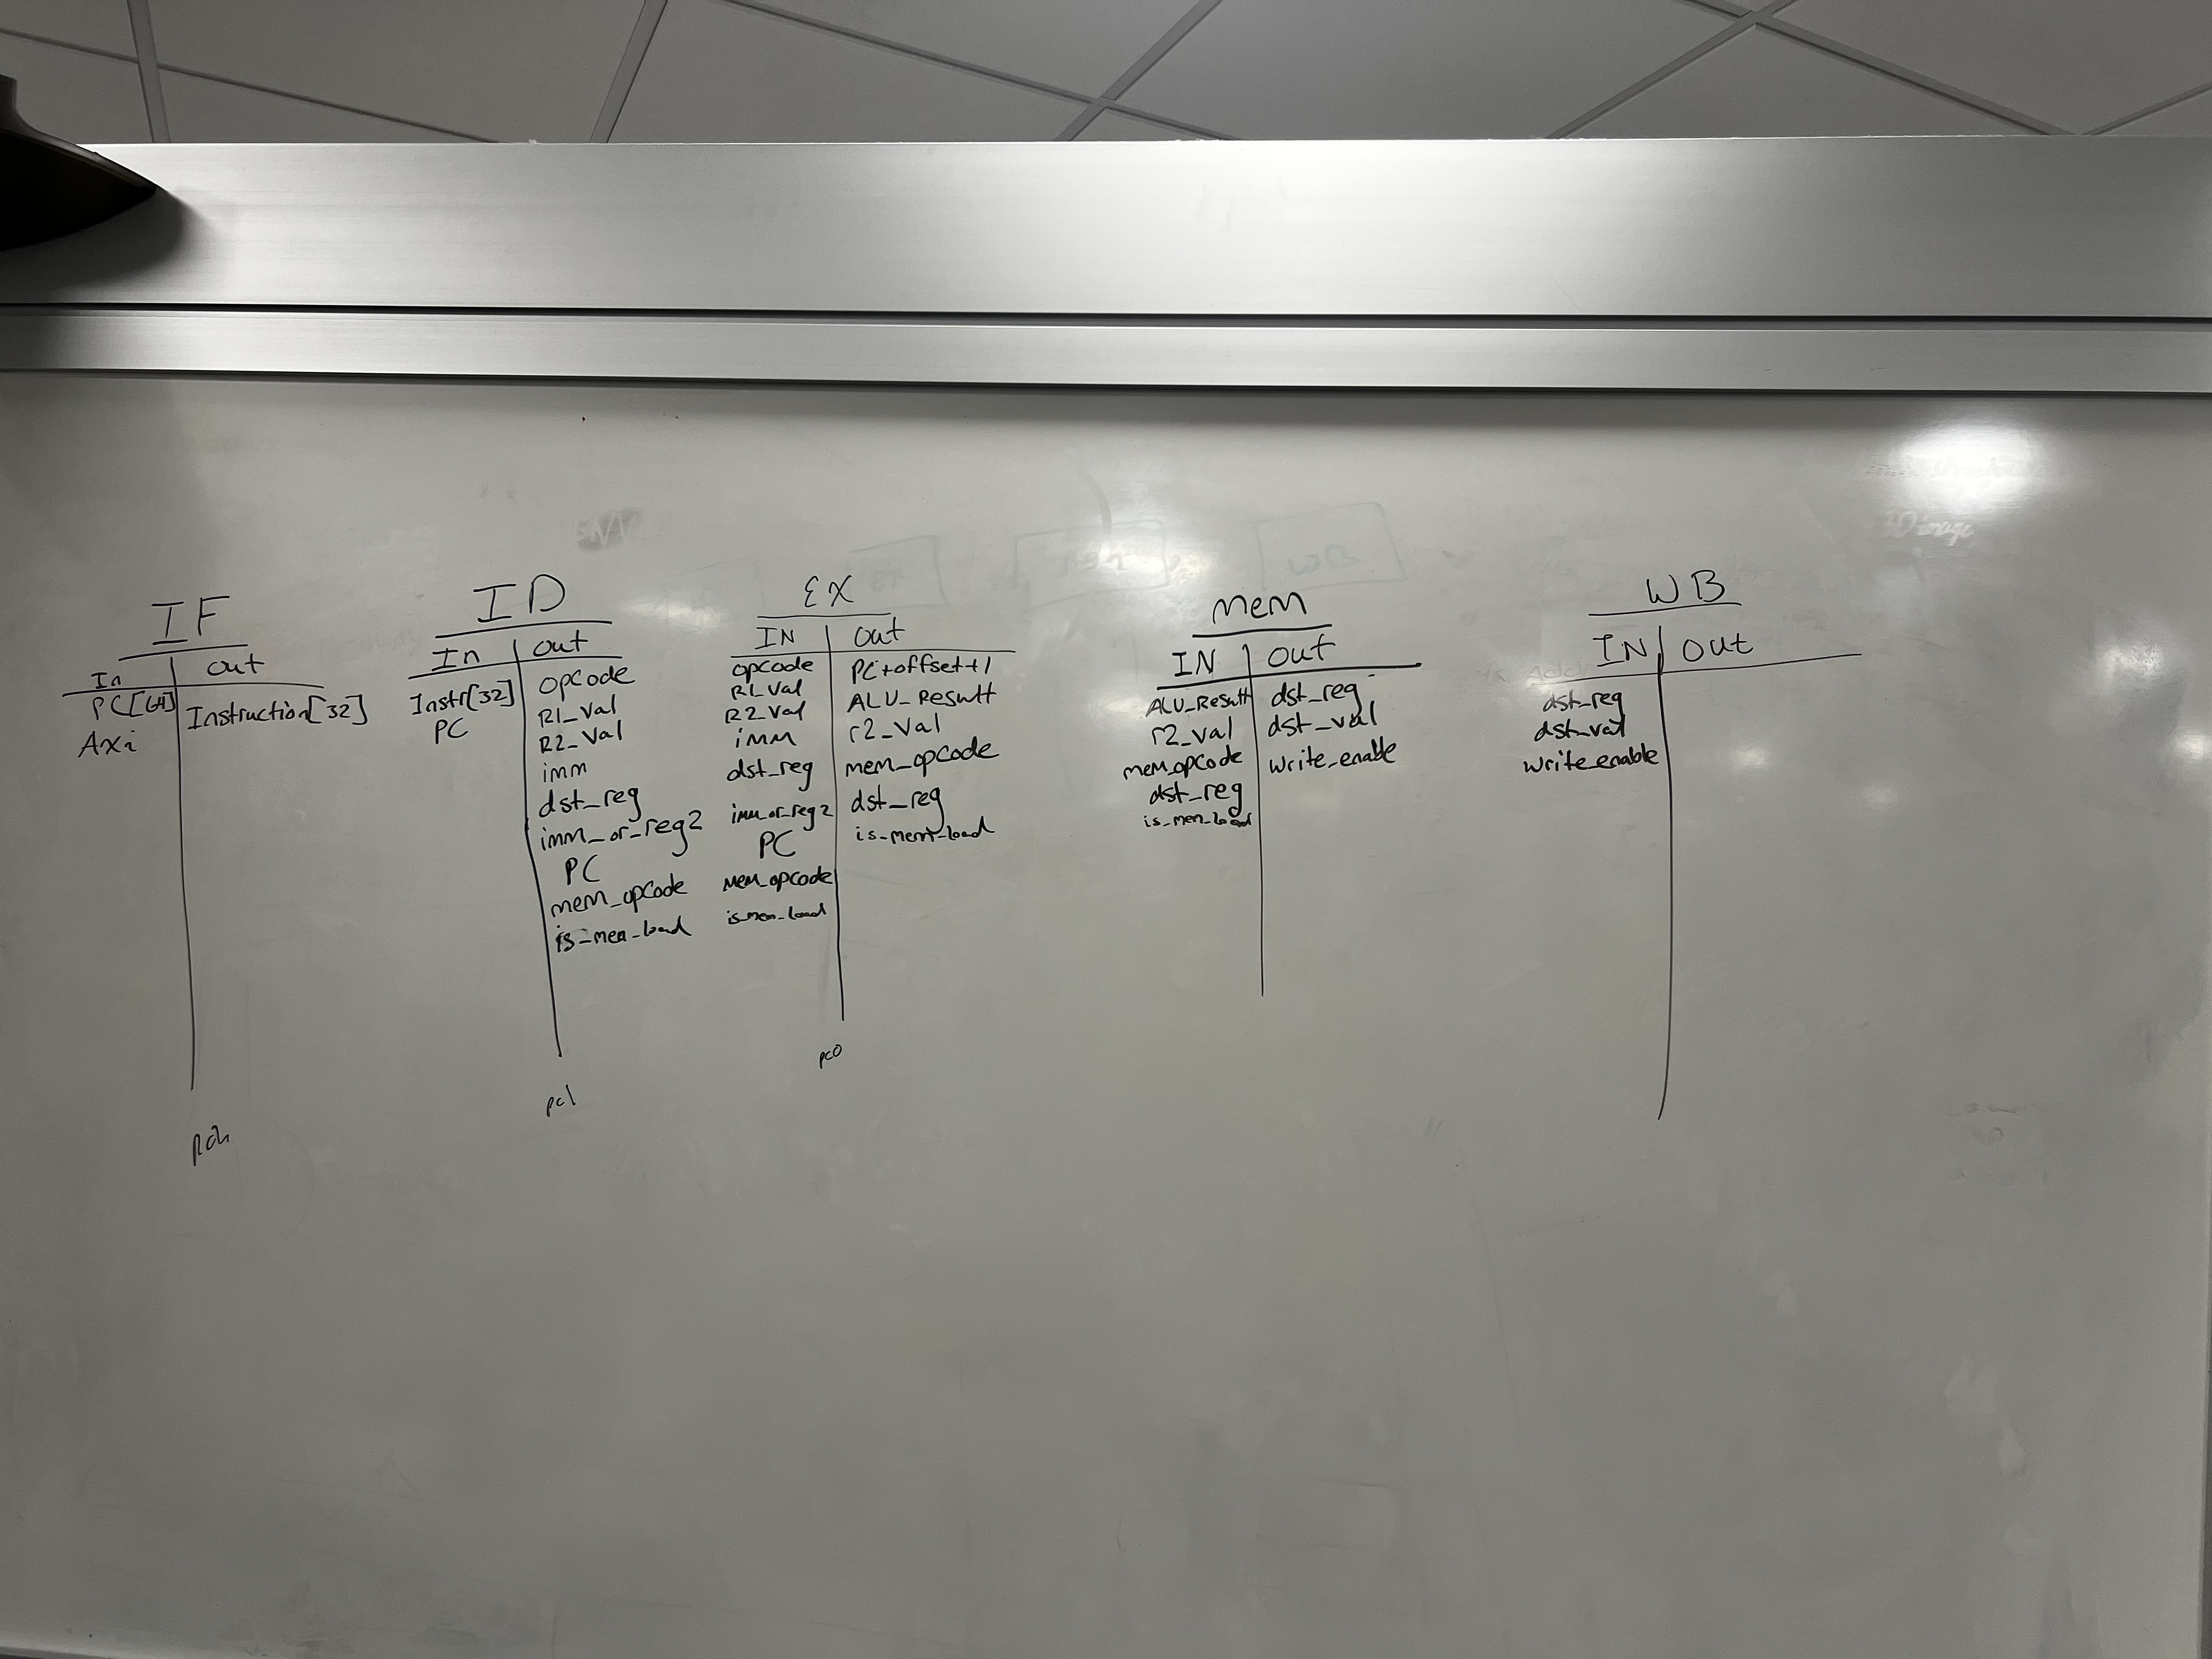 IF
In
out
PC[64]
Instruction[32]
Axi
pc2
ID
In
out
Instr[32]
opcode
PC
R1_Val
R2_Val
imm
dst_reg
imm_or_reg2
PC
mem_opcode
is_mem_load
pc1
EX
IN
out
opcode
PC+offset+1
R1_Val
ALU_Result
R2_Val
r2_val
imm
mem_opcode
dst_reg
dst_reg
imm_or_reg2
is_mem_load
PC
mem_opcode
is_mem_load
pc0
mem
IN
out
ALU_Result
dst_reg
r2_val
dst_val
mem_opcode
write_enable
dst_reg
is_mem_load
WB
IN
out
dst_reg
dst_val
write_enable
3D image